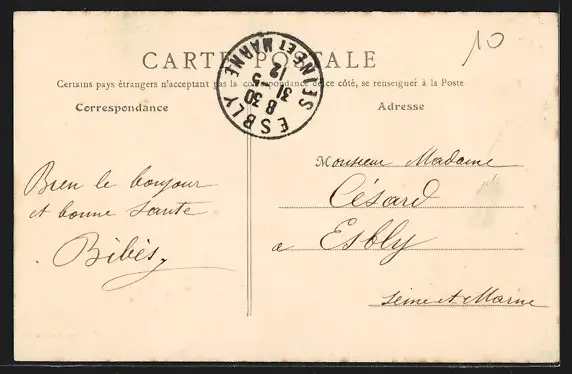 10
CARTE POSTALE
Certains pays étrangers n'acceptant pas la correspondance de ce côté, se renseigner à la Poste
Correspondance
Adresse
ESBLY
SEINE ET MARNE
8 30
31 - 5
12
Bien le bonjour
et bonne Sante
Bibès
Monsieur Madame
Césard
a Esbly
Seine et Marne